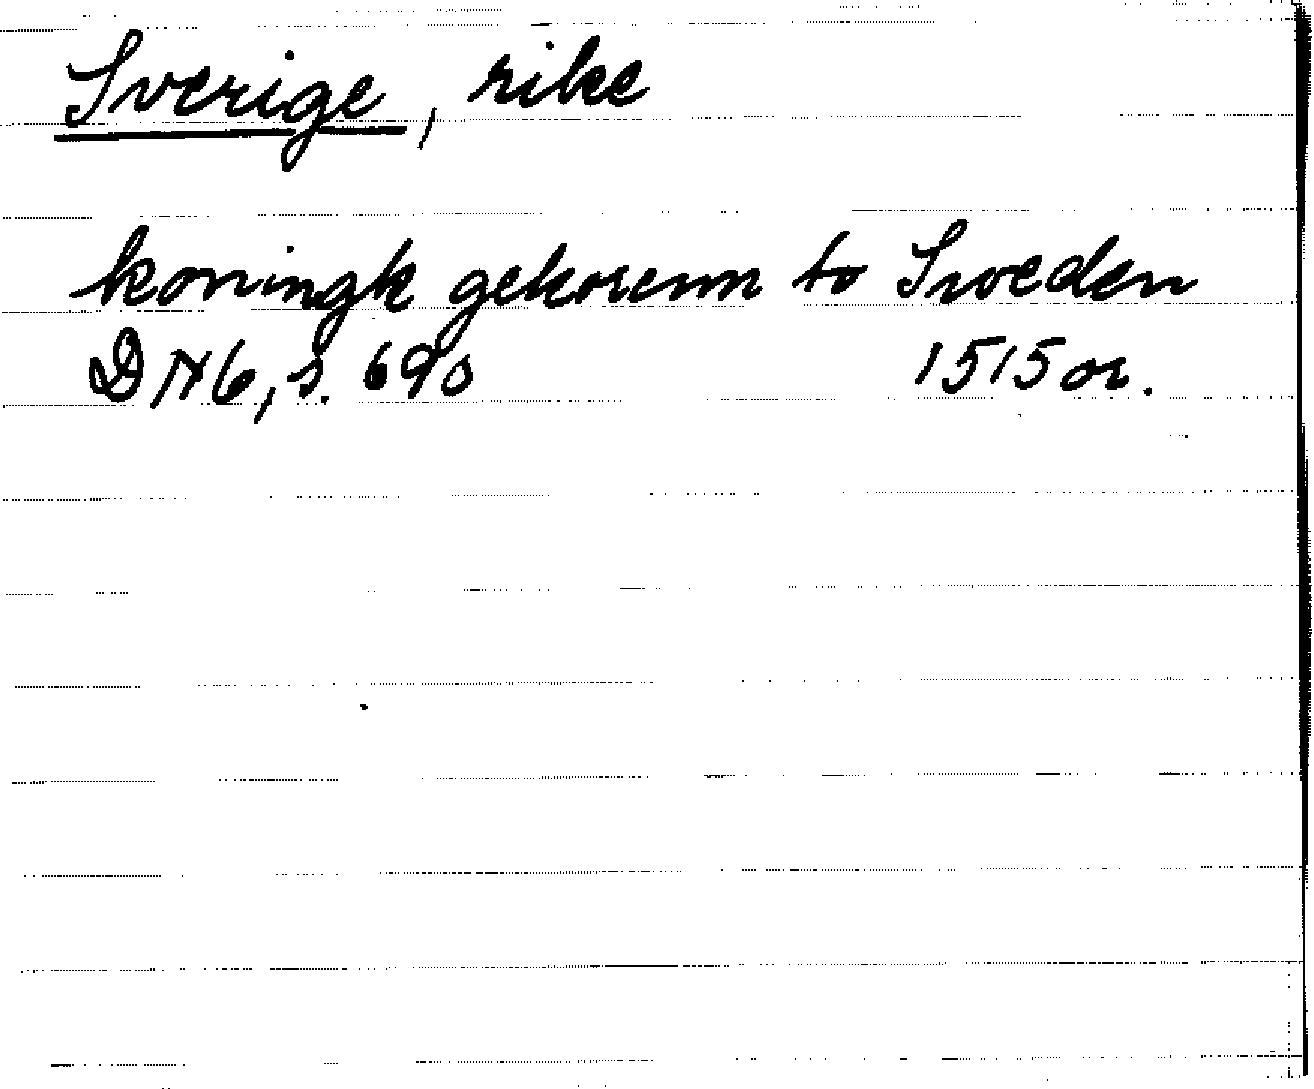 Sverige, rike
koningk gekorenn to Sweden
DN6, s. 690 1515 or.